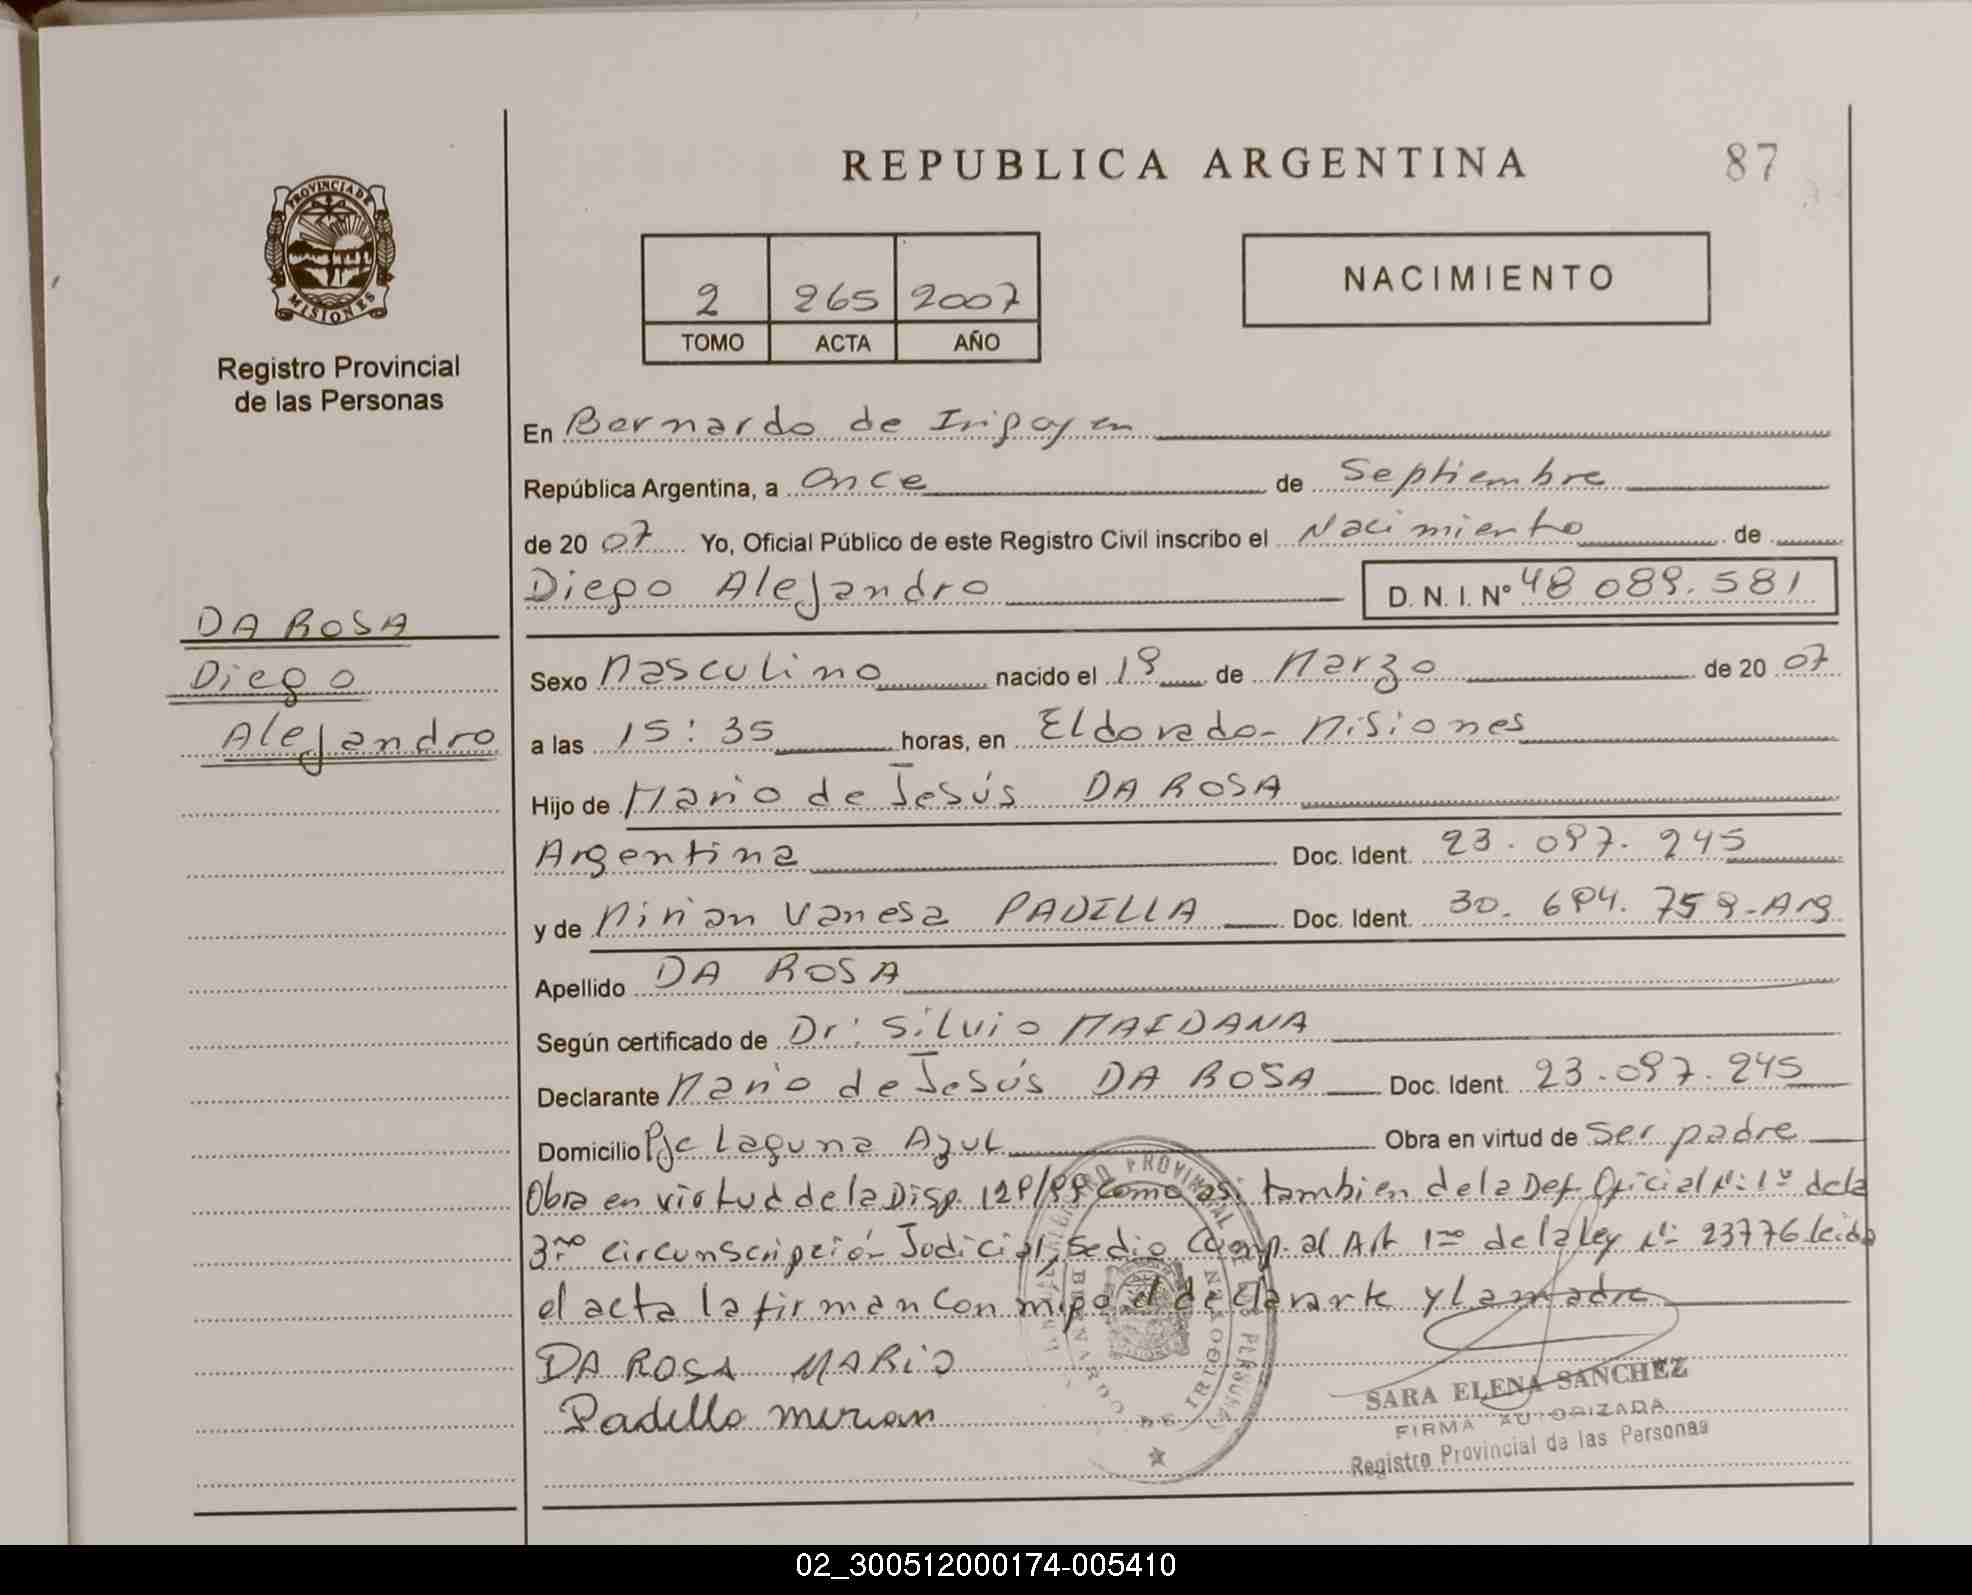 REPUBLICA ARGENTINA
87
PROVINCIA DE
MISIONES
Registro Provincial
de las Personas
2 265 2007
TOMO ACTA AÑO
NACIMIENTO
En Bernardo de Irigoyen
República Argentina, a Once de Septiembre
de 2007 Yo, Oficial Público de este Registro Civil inscribo el Nacimiento de
Diego Alejandro D. N. I. Nº 48 089.581
DA ROSA
Diego
Alejandro
Sexo Masculino nacido el 19 de Marzo de 2007
a las 15:35 horas, en Eldorado- Misiones
Hijo de Mario de Jesús DA ROSA
Argentina Doc. Ident. 23.097.245
y de Mirian Vanesa PADILLA Doc. Ident. 30. 694. 759-Arg
Apellido DA ROSA
Según certificado de Dr: Silvio MAIDANA
Declarante Mario de Jesús DA ROSA Doc. Ident. 23.097.245
Domicilio Pje Laguna Azul Obra en virtud de Ser padre
Obra en virtud de la Disp. como así tambien de la Def. Oficial Nº 1º de la
3ra circunscripción Judicial, Se dio Comp. al Art 1ro de la Ley Nº 23776 leida
el acta la firman con migo el declarante y la madre
DA ROSA MARIO
Padilla Mirian
REGISTRO PROVINCIAL DE LAS PERSONAS
BERNARDO DE IRIGOYEN
SARA ELENA SANCHEZ
FIRMA AUTORIZADA
Registro Provincial de las Personas
02_300512000174-005410